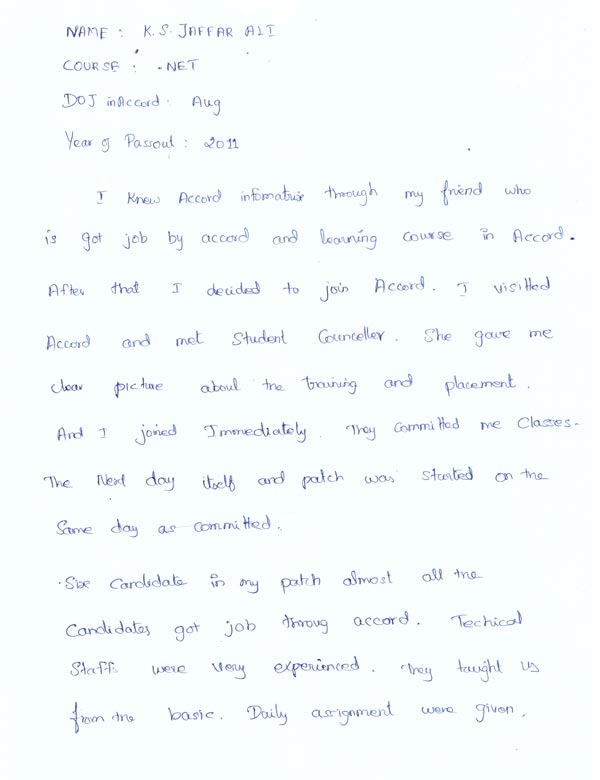 NAME : K.S. JAFFAR ALI
COURSE : .NET
DOJ in Accord : Aug
Year of Passout : 2011
I knew Accord infomatrix through my friend who
is got job by accord and learning course in Accord.
After that I decided to join Accord. I visitted
Accord and met Student Counceller. She gave me
clear picture about the training and placement.
And I joined Immediately. They committed me Classes.
The Next day itself and patch was started on the
Same day as committed.
Six Candidate in my patch almost all the
Candidates got job throug accord. Techical
Staffs were very experienced. They taught us
from the basic. Daily assignment were given.